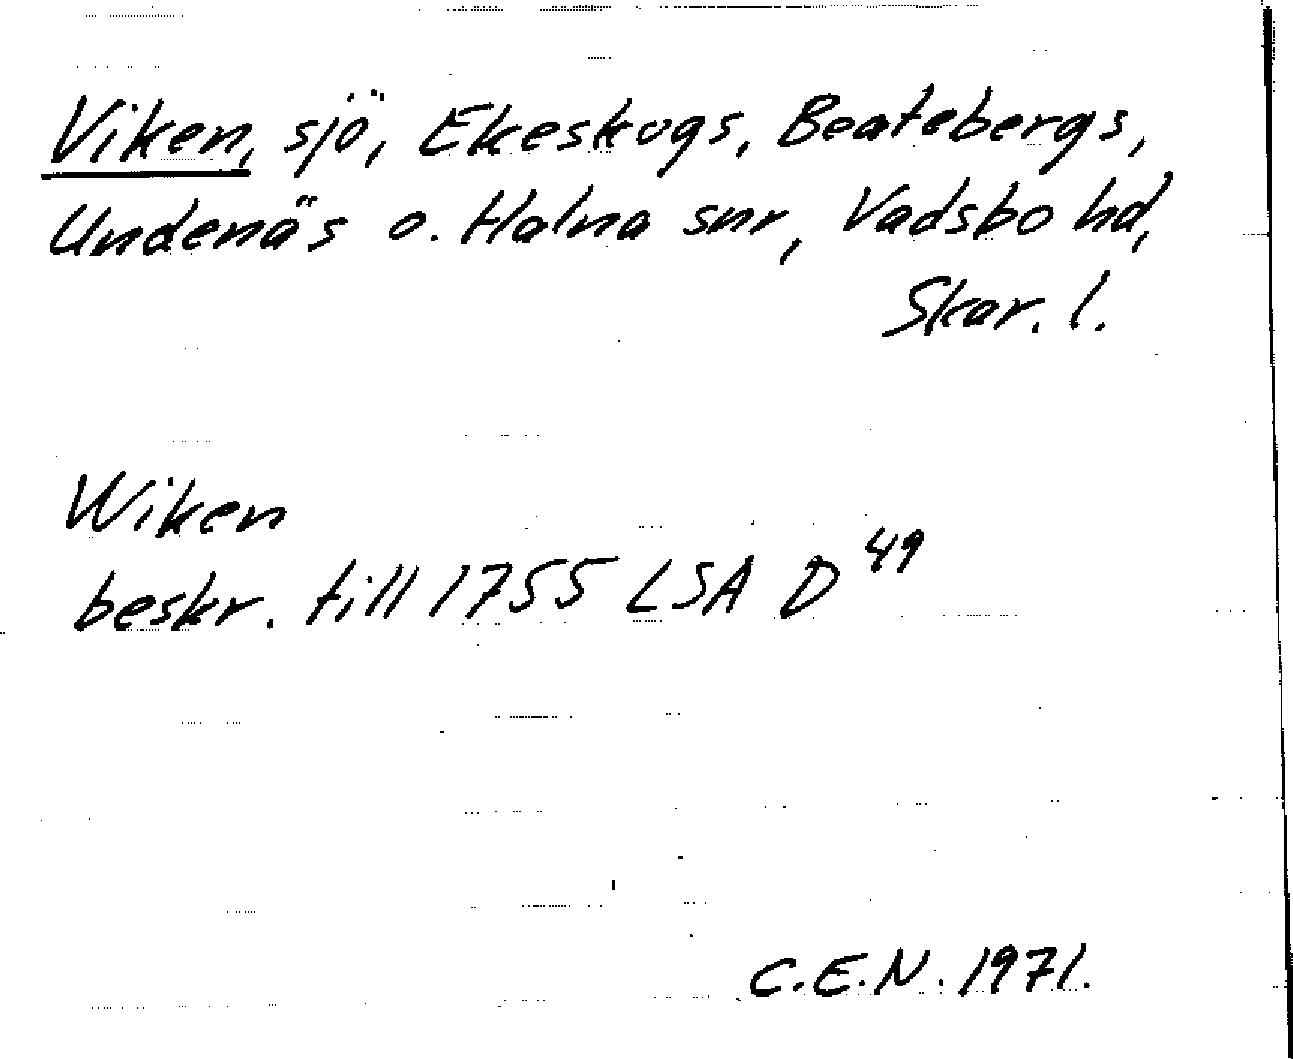 Viken, sjö, Ekeskogs, Beatebergs,
Undenäs o. Halna snr, Vadsbo hd,
Skar. l.
Wiken
beskr. till 1755 LSA D 49
C.E.N. 1971.